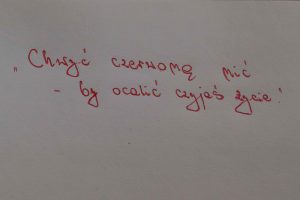 „Chwyć czerwoną nić
- by ocalić czyjeś życie"